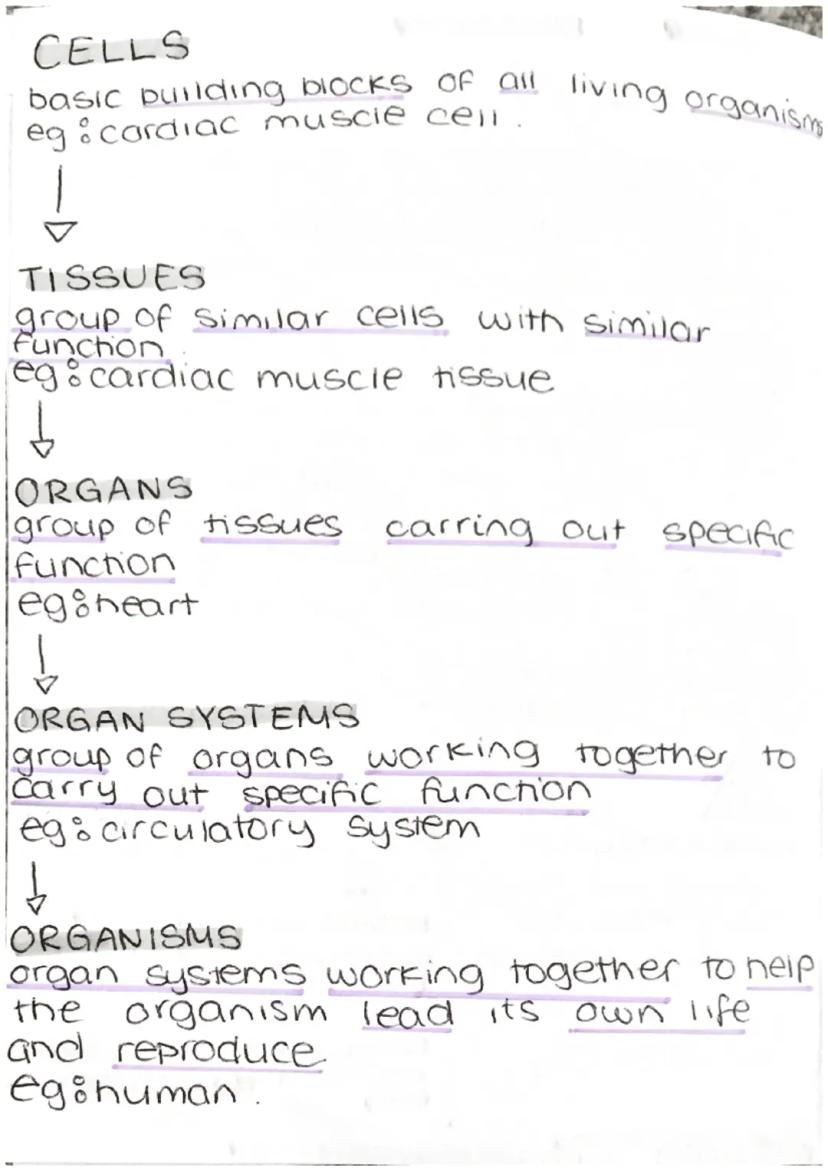 CELLS
basic building blocks of all living organisms
eg: cardiac muscle cell.
TISSUES
group of similar cells with similar
function.
eg: cardiac muscle tissue
ORGANS
group of tissues carring out specific
function
eg: heart
ORGAN SYSTEMS
group of organs working together to
carry out specific function
eg: circulatory system
ORGANISMS
organ systems working together to help
the organism lead its own life
and reproduce.
eg: human.